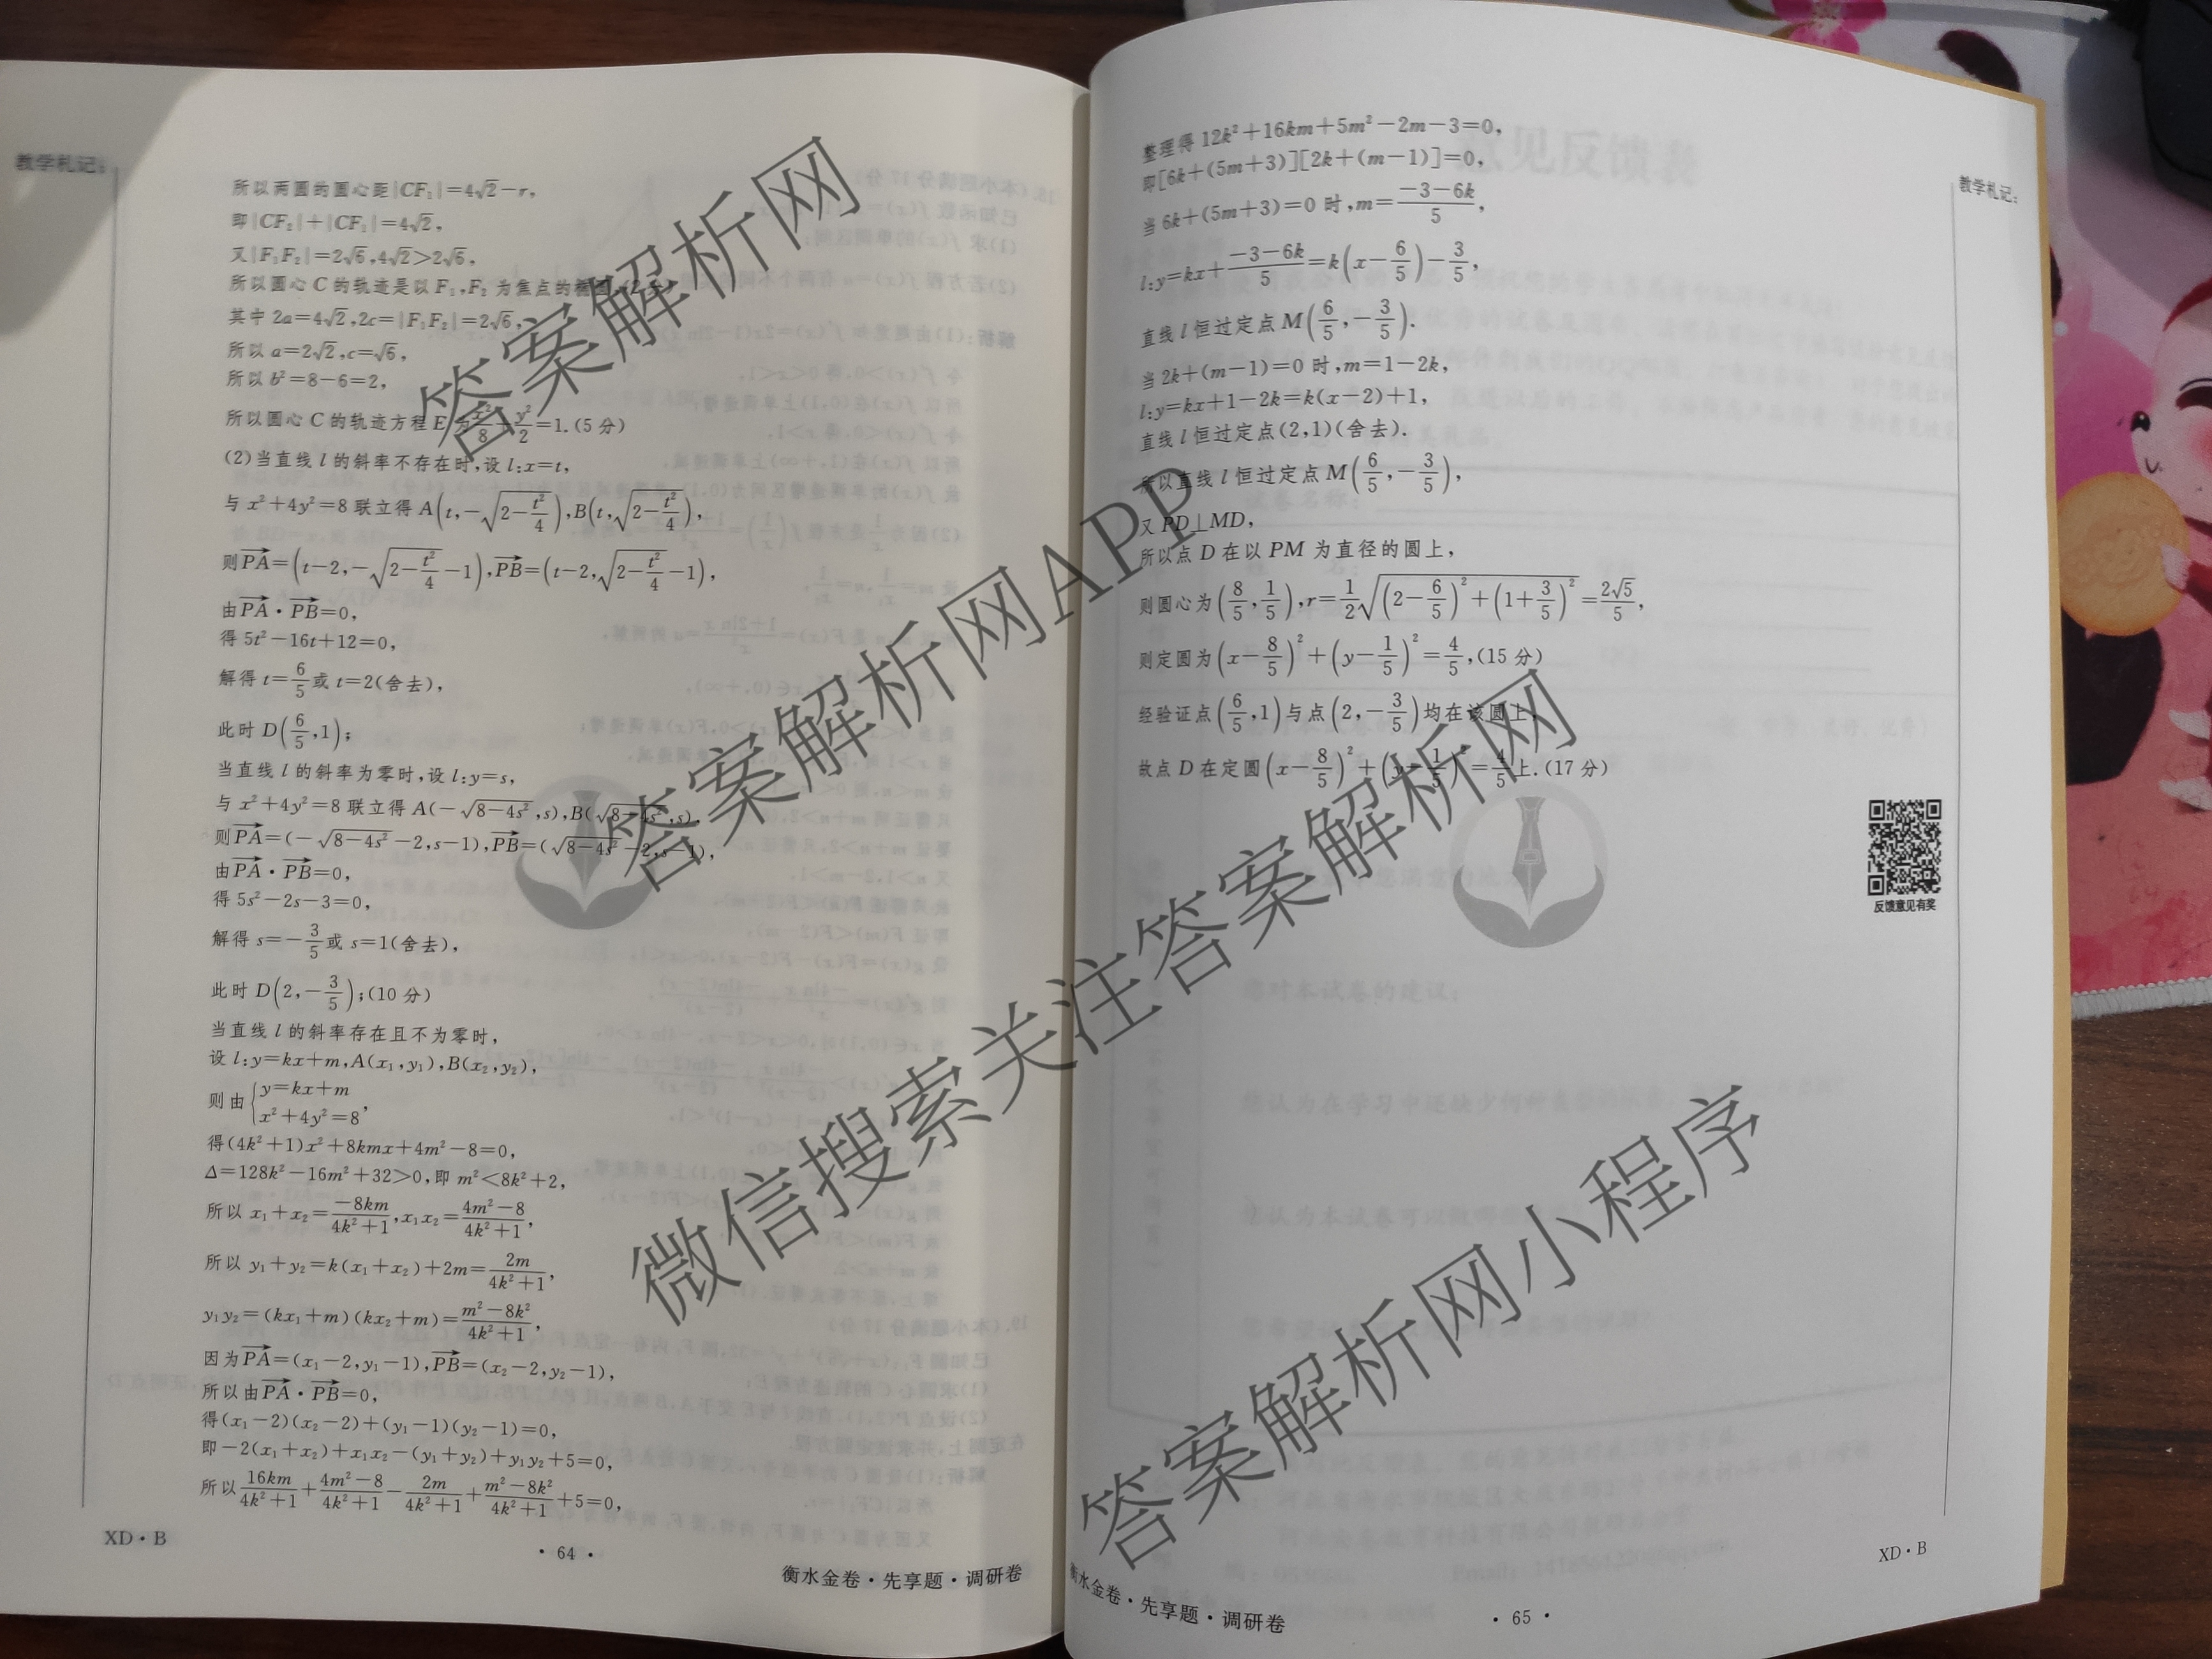 教学札记:
所以两圆的圆心距|CF₁|=4√2-r,
即|CF₂|+|CF₁|=4√2,
又|F₁F₂|=2√6,4√2>2√6,
所以圆心C的轨迹是以F₁,F₂为焦点的椭圆,(2分)
其中2a=4√2,2c=|F₁F₂|=2√6,
所以a=2√2,c=√6,
所以b²=8-6=2,
所以圆心C的轨迹方程E为x²/8+y²/2=1.(5分)
(2)当直线l的斜率不存在时,设l:x=t,
与x²+4y²=8联立得A(t,-√(2-t²/4)),B(t,√(2-t²/4)),
则PA→=(t-2,-√(2-t²/4)-1),PB→=(t-2,√(2-t²/4)-1),
由PA→·PB→=0,
得5t²-16t+12=0,
解得t=6/5或t=2(舍去),
此时D(6/5,1);
当直线l的斜率为零时,设l:y=s,
与x²+4y²=8联立得A(-√(8-4s²),s),B(√(8-4s²),s),
则PA→=(-√(8-4s²)-2,s-1),PB→=(√(8-4s²)-2,s-1),
由PA→·PB→=0,
得5s²-2s-3=0,
解得s=-3/5或s=1(舍去),
此时D(2,-3/5);(10分)
当直线l的斜率存在且不为零时,
设l:y=kx+m,A(x₁,y₁),B(x₂,y₂),
则由{y=kx+m
x²+4y²=8,
得(4k²+1)x²+8kmx+4m²-8=0,
Δ=128k²-16m²+32>0,即m²<8k²+2,
所以x₁+x₂=-8km/(4k²+1),x₁x₂=(4m²-8)/(4k²+1),
所以y₁+y₂=k(x₁+x₂)+2m=2m/(4k²+1),
y₁y₂=(kx₁+m)(kx₂+m)=(m²-8k²)/(4k²+1),
因为PA→=(x₁-2,y₁-1),PB→=(x₂-2,y₂-1),
所以由PA→·PB→=0,
得(x₁-2)(x₂-2)+(y₁-1)(y₂-1)=0,
即-2(x₁+x₂)+x₁x₂-(y₁+y₂)+y₁y₂+5=0,
所以16km/(4k²+1)+(4m²-8)/(4k²+1)-2m/(4k²+1)+(m²-8k²)/(4k²+1)+5=0,
XD·B
·64·
衡水金卷·先享题·调研卷
整理得12k²+16km+5m²-2m-3=0,
即[6k+(5m+3)][2k+(m-1)]=0,
当6k+(5m+3)=0时,m=(-3-6k)/5,
l:y=kx+(-3-6k)/5=k(x-6/5)-3/5,
直线l恒过定点M(6/5,-3/5).
当2k+(m-1)=0时,m=1-2k,
l:y=kx+1-2k=k(x-2)+1,
直线l恒过定点(2,1)(舍去).
所以直线l恒过定点M(6/5,-3/5),
又PD⊥MD,
所以点D在以PM为直径的圆上,
则圆心为(8/5,1/5),r=1/2√((2-6/5)²+(1+3/5)²)=2√5/5,
则定圆为(x-8/5)²+(y-1/5)²=4/5,(15分)
经验证点(6/5,1)与点(2,-3/5)均在该圆上,
故点D在定圆(x-8/5)²+(y-1/5)²=4/5上.(17分)
教学札记:
反馈意见有奖
XD·B
衡水金卷·先享题·调研卷
·65·
答案解析网
答案解析网APP
微信搜索关注答案解析网
答案解析网小程序